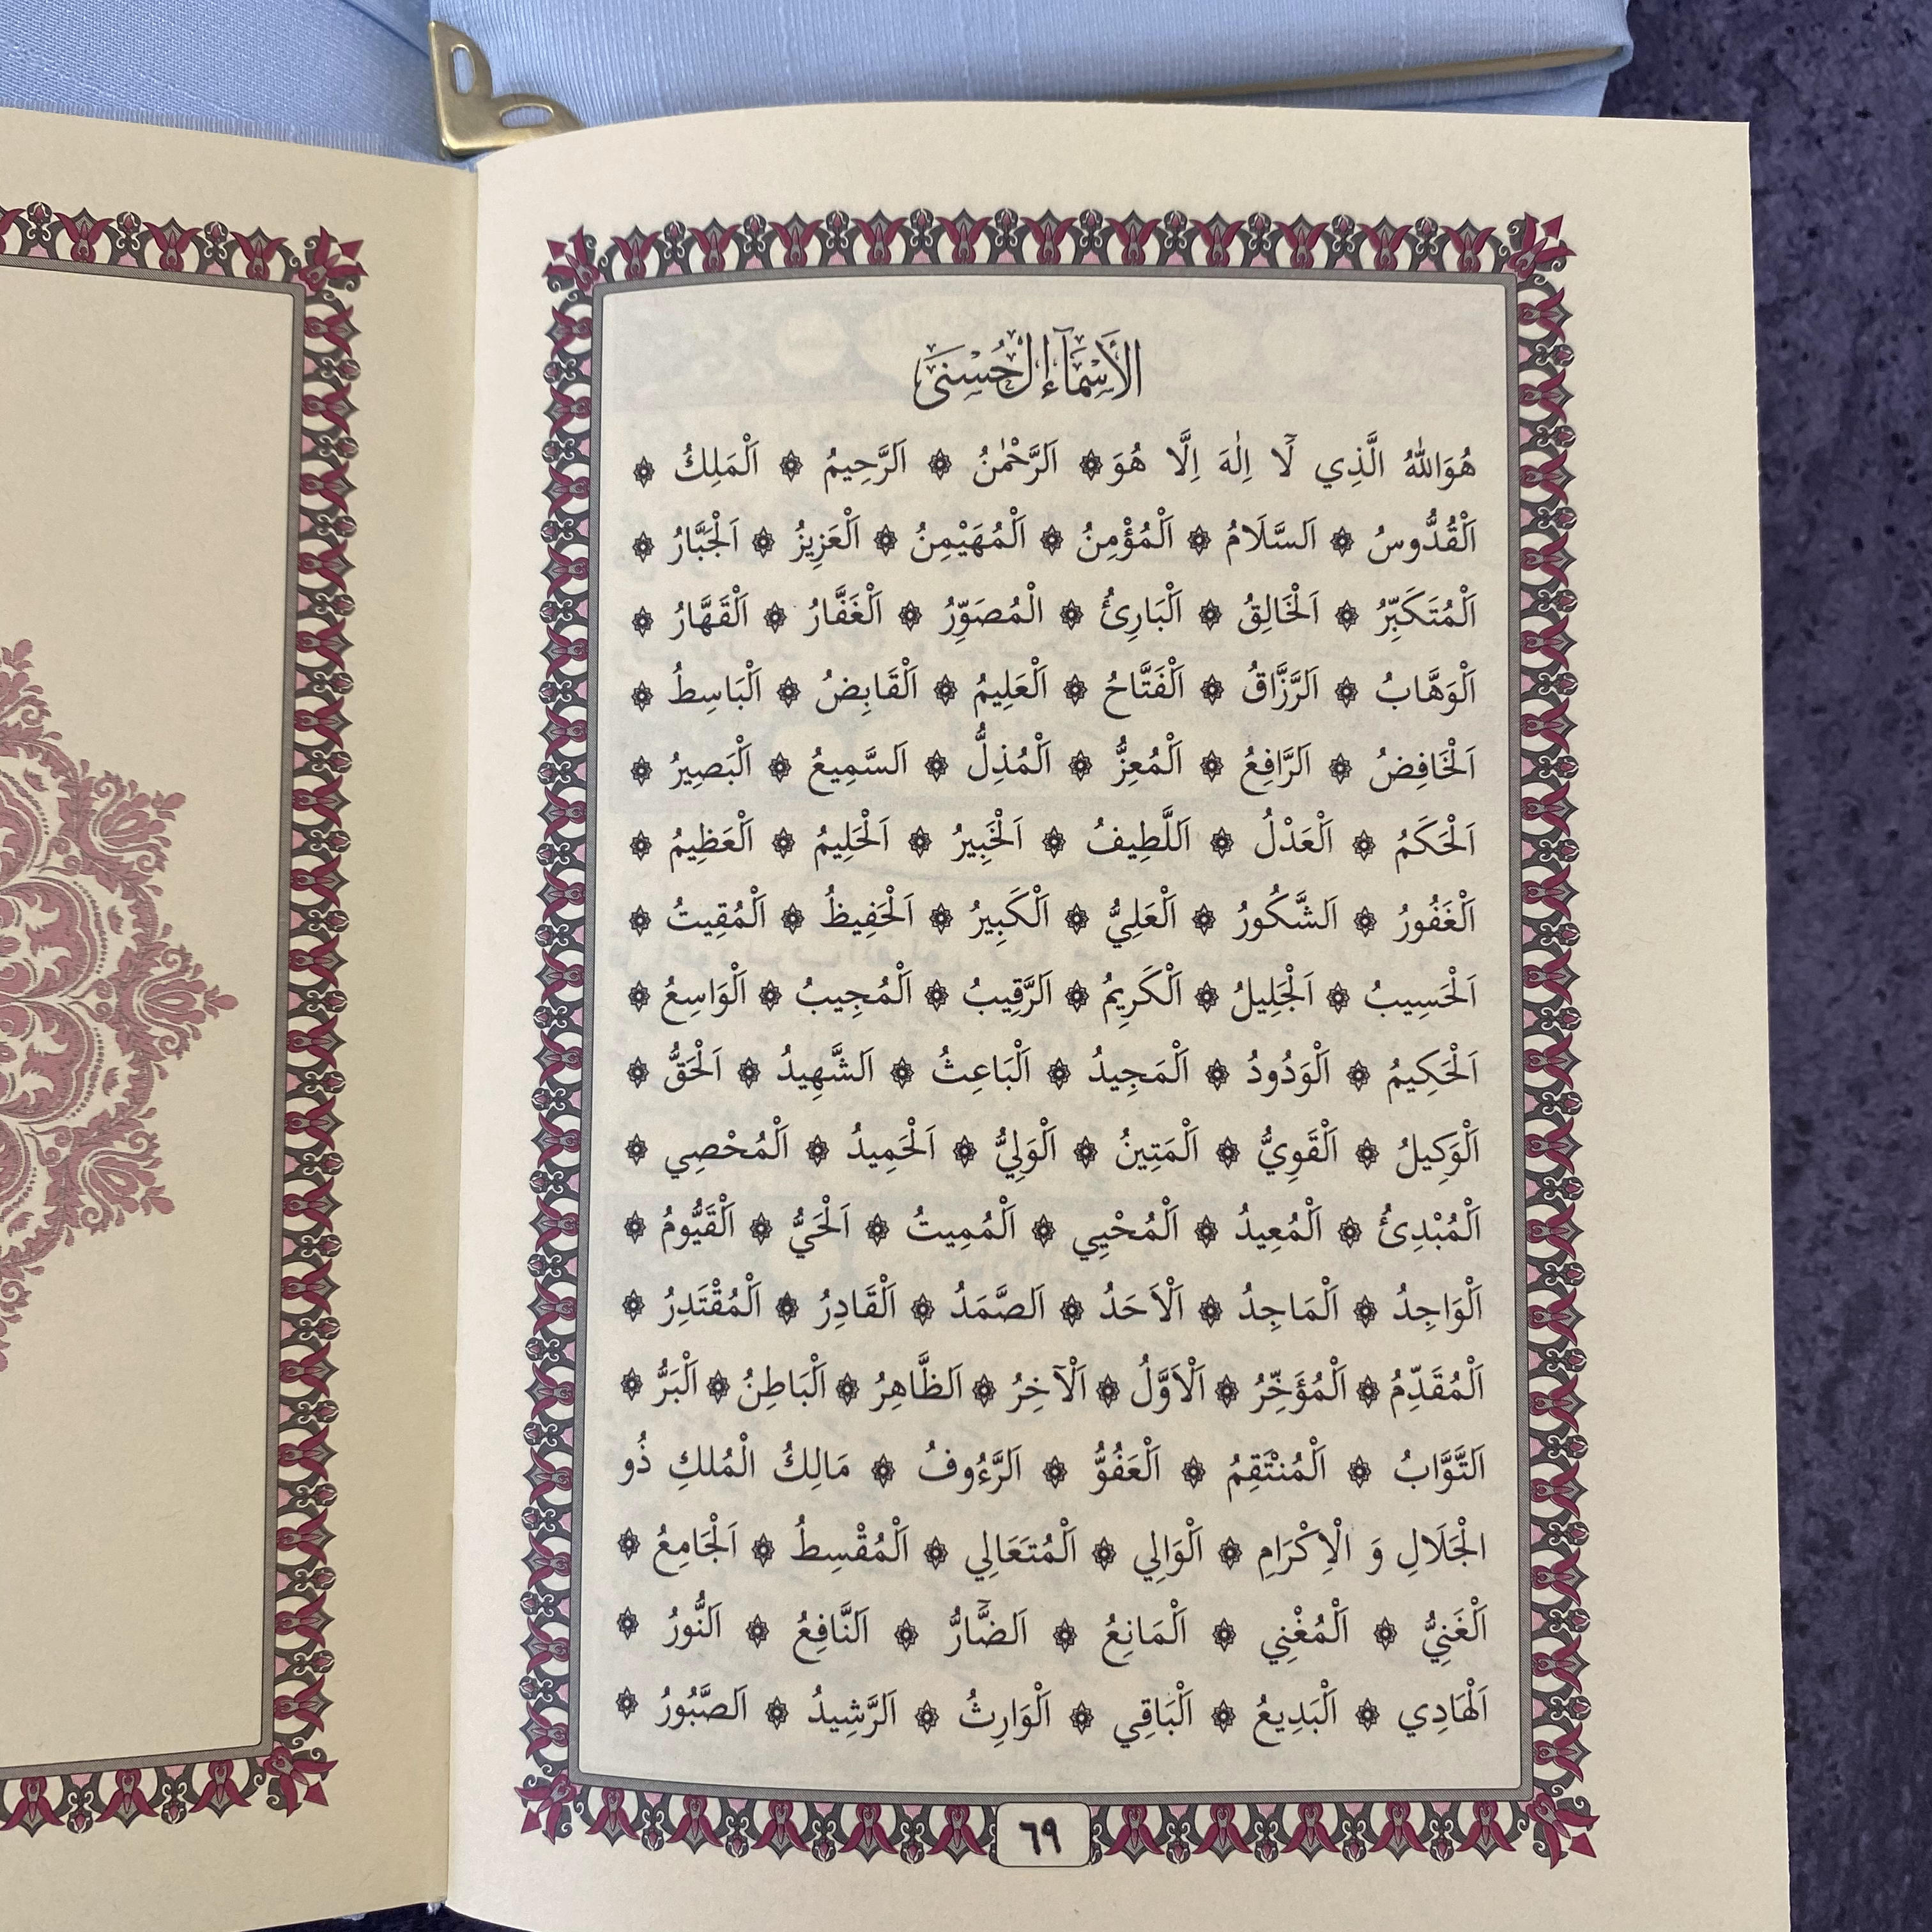 الأَسْمَآءُ الْحُسْنَىٰ
هُوَاللّٰهُ الَّذِي لَٓا اِلٰهَ اِلَّا هُوَ ۞ اَلرَّحْمٰنُ ۞ اَلرَّحِيمُ ۞ اَلْمَلِكُ ۞
اَلْقُدُّوسُ ۞ اَلسَّلَامُ ۞ اَلْمُؤْمِنُ ۞ اَلْمُهَيْمِنُ ۞ اَلْعَزِيزُ ۞ اَلْجَبَّارُ ۞
اَلْمُتَكَبِّرُ ۞ اَلْخَالِقُ ۞ اَلْبَارِئُ ۞ الْمُصَوِّرُ ۞ اَلْغَفَّارُ ۞ اَلْقَهَّارُ ۞
اَلْوَهَّابُ ۞ اَلرَّزَّاقُ ۞ اَلْفَتَّاحُ ۞ اَلْعَلِيمُ ۞ اَلْقَابِضُ ۞ اَلْبَاسِطُ ۞
اَلْخَافِضُ ۞ اَلرَّافِعُ ۞ اَلْمُعِزُّ ۞ اَلْمُذِلُّ ۞ اَلسَّمِيعُ ۞ اَلْبَصِيرُ ۞
اَلْحَكَمُ ۞ اَلْعَدْلُ ۞ اَللَّطِيفُ ۞ اَلْخَبِيرُ ۞ اَلْحَلِيمُ ۞ اَلْعَظِيمُ ۞
اَلْغَفُورُ ۞ اَلشَّكُورُ ۞ اَلْعَلِيُّ ۞ اَلْكَبِيرُ ۞ اَلْحَفِيظُ ۞ اَلْمُقِيتُ ۞
اَلْحَسِيبُ ۞ اَلْجَلِيلُ ۞ اَلْكَرِيمُ ۞ اَلرَّقِيبُ ۞ اَلْمُجِيبُ ۞ اَلْوَاسِعُ ۞
اَلْحَكِيمُ ۞ اَلْوَدُودُ ۞ اَلْمَجِيدُ ۞ اَلْبَاعِثُ ۞ اَلشَّهِيدُ ۞ اَلْحَقُّ ۞
اَلْوَكِيلُ ۞ اَلْقَوِيُّ ۞ اَلْمَتِينُ ۞ اَلْوَلِيُّ ۞ اَلْحَمِيدُ ۞ اَلْمُحْصِي ۞
اَلْمُبْدِئُ ۞ اَلْمُعِيدُ ۞ اَلْمُحْيِي ۞ اَلْمُمِيتُ ۞ اَلْحَيُّ ۞ اَلْقَيُّومُ ۞
اَلْوَاجِدُ ۞ اَلْمَاجِدُ ۞ اَلْاَحَدُ ۞ اَلصَّمَدُ ۞ اَلْقَادِرُ ۞ اَلْمُقْتَدِرُ ۞
اَلْمُقَدِّمُ ۞ اَلْمُؤَخِّرُ ۞ اَلْاَوَّلُ ۞ اَلْآخِرُ ۞ اَلظَّاهِرُ ۞ اَلْبَاطِنُ ۞ اَلْبَرُّ ۞
اَلتَّوَّابُ ۞ اَلْمُنْتَقِمُ ۞ اَلْعَفُوُّ ۞ اَلرَّءُوفُ ۞ مَالِكُ الْمُلكِ ذُو
الْجَلَالِ وَ الْاِكْرَامِ ۞ اَلْوَالِي ۞ اَلْمُتَعَالِي ۞ اَلْمُقْسِطُ ۞ اَلْجَامِعُ ۞
اَلْغَنِيُّ ۞ اَلْمُغْنِي ۞ اَلْمَانِعُ ۞ اَلضَّٓارُّ ۞ اَلنَّافِعُ ۞ اَلنُّورُ ۞
اَلْهَادِي ۞ اَلْبَدِيعُ ۞ اَلْبَاقِي ۞ اَلْوَارِثُ ۞ اَلرَّشِيدُ ۞ اَلصَّبُورُ ۞
٦٩